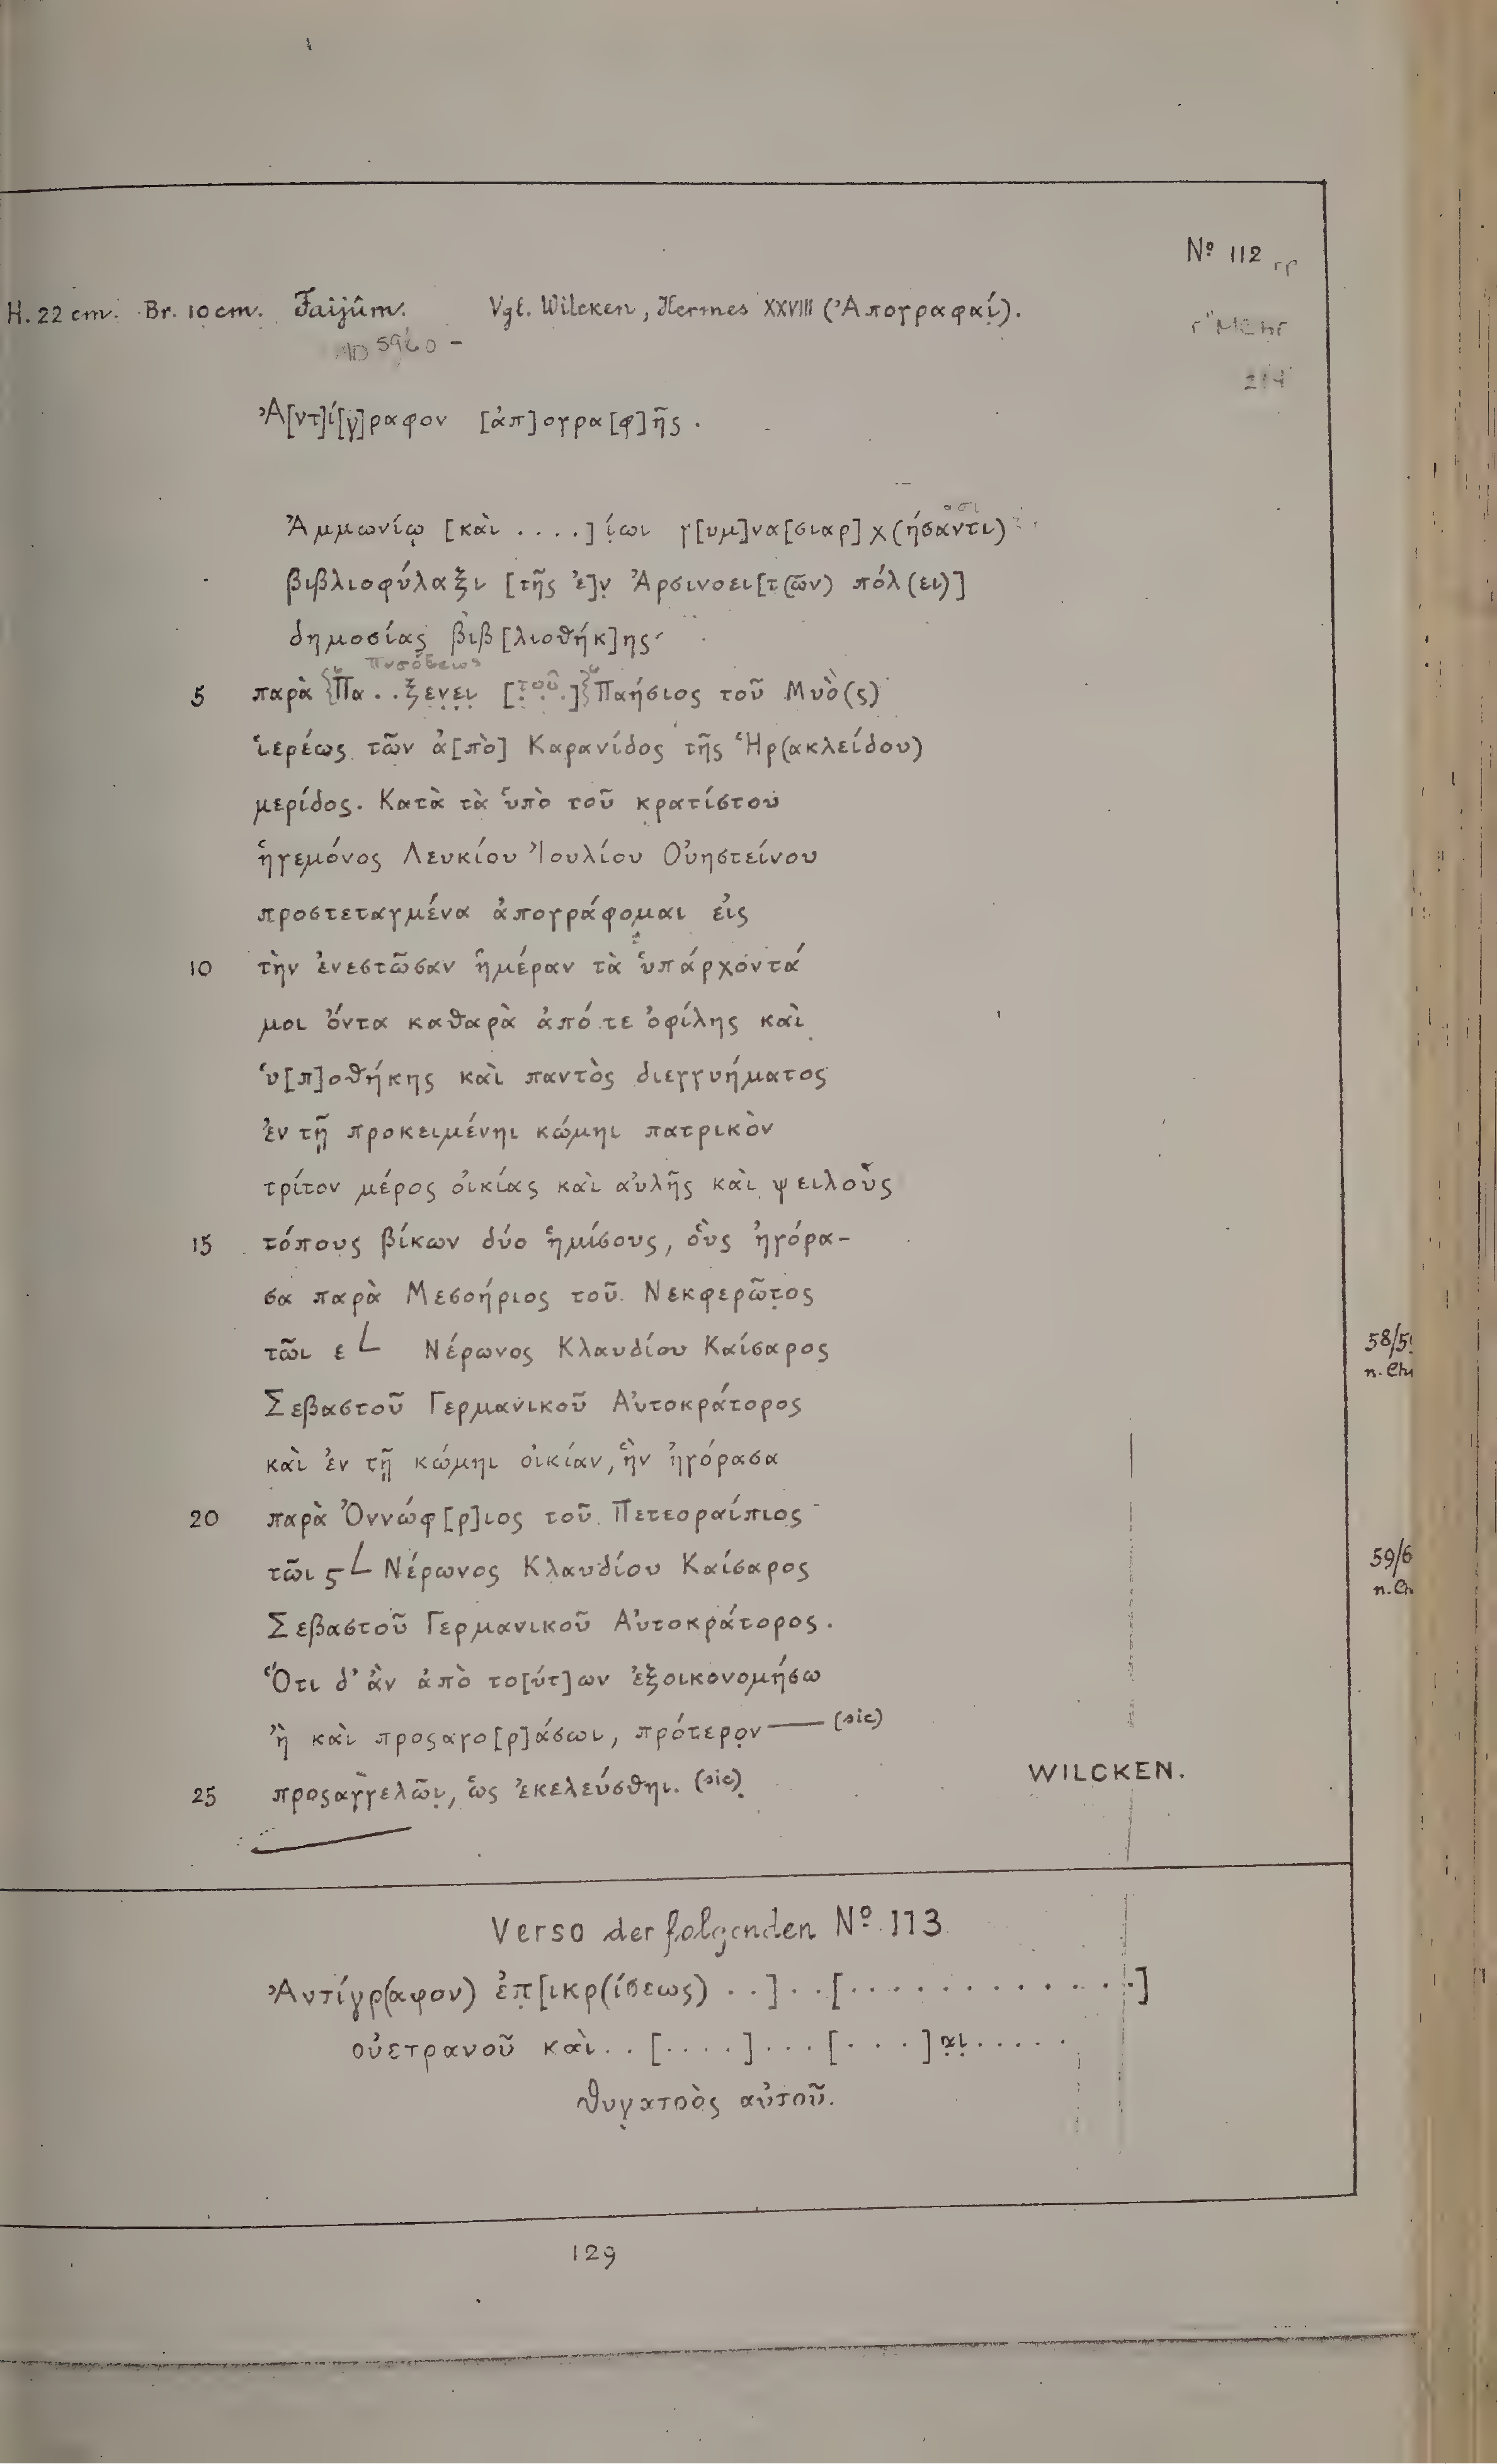 Nº 112
H. 22 cm. Br. 10 cm. Faijûm. Vgl. Wilcken, Hermes XXVIII (Ἀπογραφαί).
214
Ἀ[ντ]ί[γ]ραφον [ἀπ]ογρα[φ]ῆς.
Ἀμμωνίῳ [καὶ . . . .]ίωι γ[υμ]να[σιαρ]χ(ήσαντι)
βιβλιοφύλαξι [τῆς ἐ]ν Ἀρσινοει[τ(ῶν) πόλ(ει)]
δημοσίας βιβ[λιοθήκ]ης
5 παρὰ Πα . . ξενει [τοῦ] Παήσιος τοῦ Μυὸ(ς)
ἱερέως τῶν ἀ[πὸ] Καρανίδος τῆς Ἡρ(ακλείδου)
μερίδος. Κατὰ τὰ ὑπὸ τοῦ κρατίστου
ἡγεμόνος Λευκίου Ἰουλίου Οὐηστείνου
προστεταγμένα ἀπογράφομαι εἰς
10 τὴν ἐνεστῶσαν ἡμέραν τὰ ὑπάρχοντά
μοι ὄντα καθαρὰ ἀπό τε ὀφίλης καὶ
ὑ[π]οθήκης καὶ παντὸς διεγγυήματος
ἐν τῇ προκειμένηι κώμηι πατρικὸν
τρίτον μέρος οἰκίας καὶ αὐλῆς καὶ ψειλοὺς
15 τόπους βίκων δύο ἡμίσους, οὓς ἠγόρα-
σα παρὰ Μεσοήριος τοῦ Νεκφερῶτος
τῶι ε L Νέρωνος Κλαυδίου Καίσαρος
58/5
n. Ch
Σεβαστοῦ Γερμανικοῦ Αὐτοκράτορος
καὶ ἐν τῇ κώμηι οἰκίαν, ἣν ἠγόρασα
20 παρὰ Ὀννώφ[ρ]ιος τοῦ Πετεοραίπιος
τῶι ϛ L Νέρωνος Κλαυδίου Καίσαρος
59/6
n. Ch
Σεβαστοῦ Γερμανικοῦ Αὐτοκράτορος.
Ὅτι δ' ἂν ἀπὸ το[ύτ]ων ἐξοικονομήσω
ἢ καὶ προςαγο[ρ]άσωι, πρότερον — (sic)
25 προςαγγελῶι, ὡς ἐκελεύσθηι. (sic)
WILCKEN.
Verso der folgenden Nº 113
Ἀντίγρ(αφον) ἐπ[ικρ(ίσεως) . .] . . [. . . . . . . . . . . .]
οὐετρανοῦ καὶ . . [. . . .] . . . [. . .]αι . . . . .
θυγατρὸς αὐτοῦ.
129